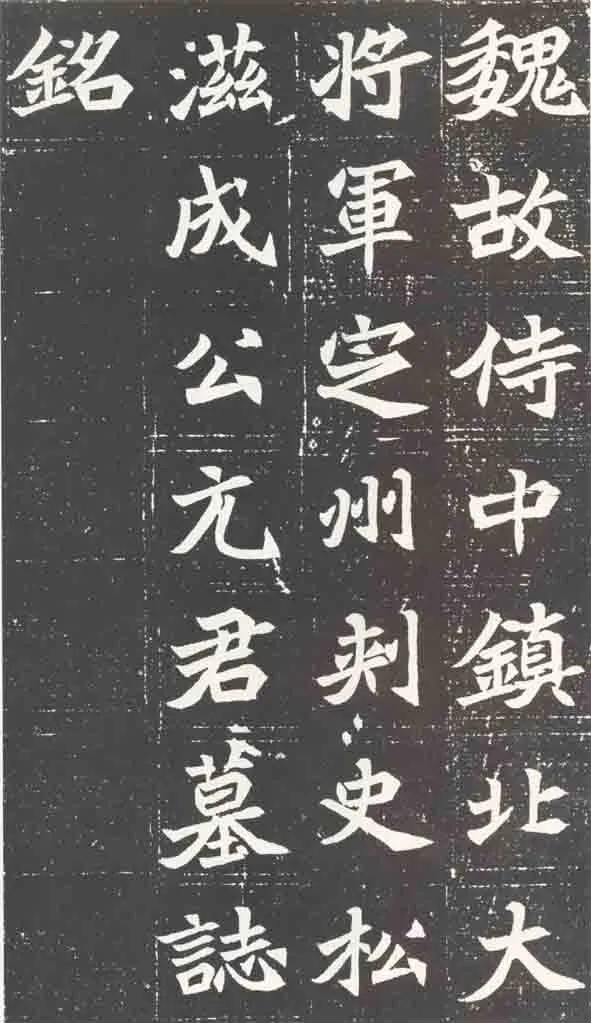 魏故侍中鎮北大
將軍定州刺史松
滋成公元君墓誌
銘